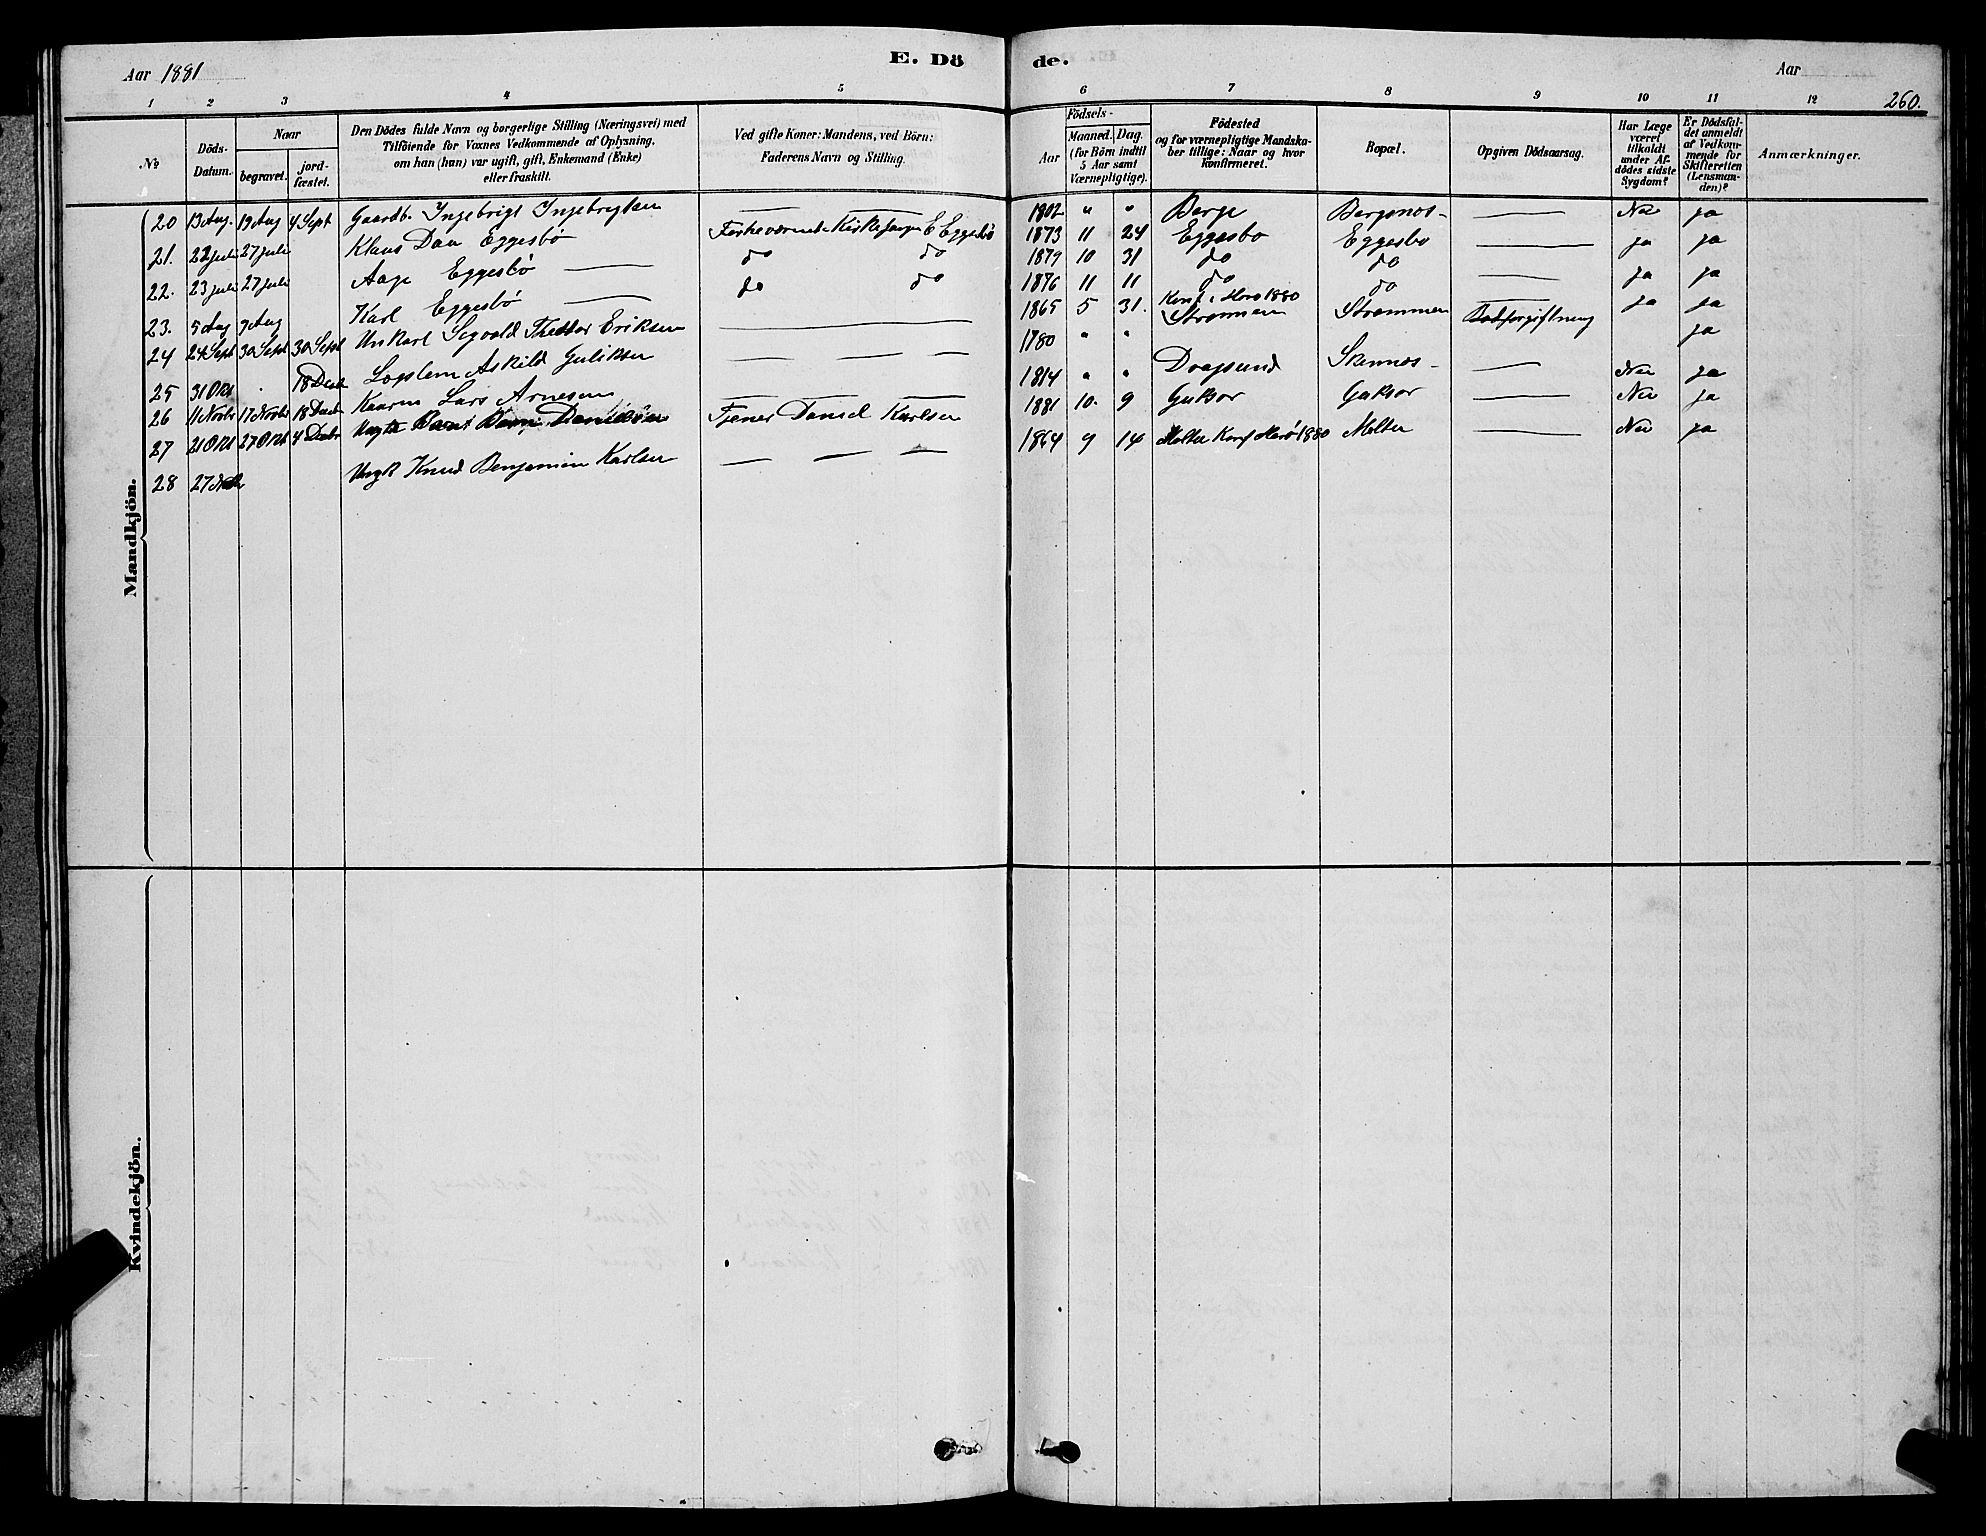 Aar 1881
E. Dö de.
Aar
260.
1 2 3 4 5 6 7 8 9 10 11 12
No
Döds-Datum.
Naar
begravet.
jord-fæstet.
Den Dödes fulde Navn og borgerlige Stilling (Næringsvei) med
Tilföiende for Voxnes Vedkommende af Oplysning,
om han (hun) var ugift, gift, Enkemand (Enke)
eller fraskilt.
Ved gifte Koner: Mandens, ved Börn:
Faderens Navn og Stilling.
Födsels-
Aar
Maaned. Dag.
(for Börn indtil
5 Aar samt
Værnepligtige).
Födested
og for værnepligtige Mandska-
ber tillige: Naar og hvor
konfirmeret.
Bopæl.
Opgiven Dödsaarsag.
Har Læge
været
tilkaldt
under Af-
dödes sidste
Sygdom?
Er Dödsfal-
det anmeldt
af Vedkom-
mende for
Skifteretten
(Lensman-
den)?
Anmærkninger.
Mandkjön.
20 13 Aug. 19 Aug 4 Sept Gaardb. Ingebrigt Ingebrigtsen — 1802 " " Berge Bergsnos — Nei ja
21. 22 juli 27 juli Klaus Daa Eggesbö E Eggesbö 1873 11 24 Eggesbo Eggesbo — ja ja
22. 23 juli 27 juli Aage Eggesbö — do do 1879 10 31 do do — ja ja
23. 5 Aug 9 Aug Karl Eggesbö — do do 1876 11 11 do do — ja ja
24 24 Sept 30 Sept 30 Sept Unkarl Sigvald Theodor Eriksen — 1865 5 31. Konf. i Herö 1880 Strømmen Strømmen Blodforgiftning ja
25 31 Okt . 18 Decb Askild Guliksen — — — 1780 " " Dragsund — Nei ja
26 11 Novbr 17 Novbr 18 Decbr Lars Arnesen — 1814 " " — Nei ja
27 21 Okt 27 Okt 4 Decbr Danielsen Tjener Daniel Karlsen 1881 10 9
28 27 Ungk Knud Benjamin Karlsen — — — 1864 9 14 Molter Konf Herö 1880 Molter — Nei ja
Kvindekjön.